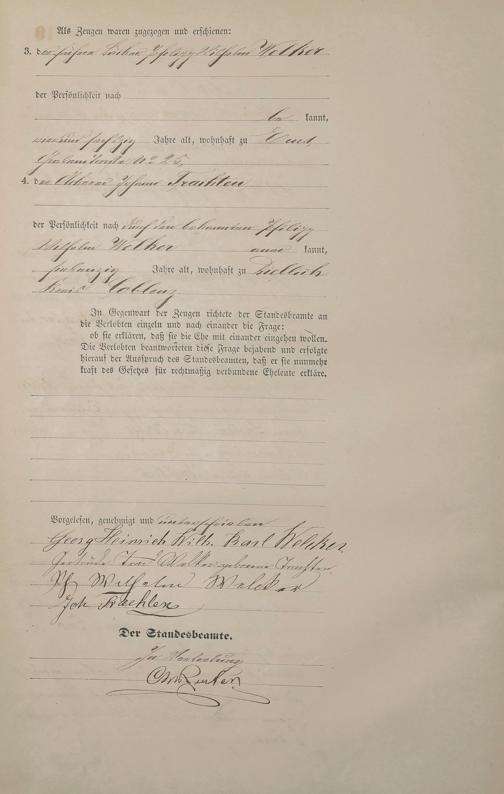 Als Zeugen waren zugezogen und erschienen:
3. der frühere Philipp Wilhelm Welker
der Persönlichkeit nach
be kannt,
vierund sechzig Jahre alt, wohnhaft zu Ems,
No 25,
4. der Ackerer Johann Trachten
der Persönlichkeit nach durch den bekannten Philipp
Wilhelm Welker aner kannt,
siebenzig Jahre alt, wohnhaft zu
Kreis Coblenz
In Gegenwart der Zeugen richtete der Standesbeamte an
die Verlobten einzeln und nach einander die Frage:
ob sie erklären, daß sie die Ehe mit einander eingehen wollen.
Die Verlobten beantworteten diese Frage bejahend und erfolgte
hierauf der Ausspruch des Standesbeamten, daß er sie nunmehr
kraft des Gesetzes für rechtmäßig verbundene Eheleute erkläre.
Vorgelesen, genehmigt und unterschrieben
Georg Heinrich Wilh. Karl Welcker
geborene Trachten
Ph Wilhelm Welcker
Joh Trachten
Der Standesbeamte.
In Vertretung